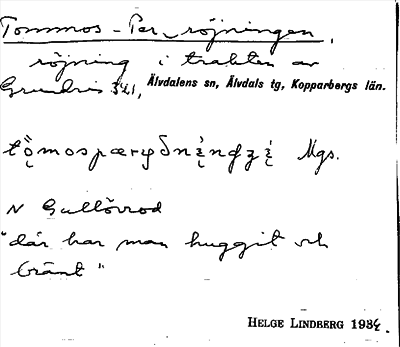 Tommos-Per-röjningen,
röjning i trakten av
321, Älvdalens sn, Älvdals tg, Kopparbergs län.
Mgs.
N
"där har man huggit och
bränt"
HELGE LINDBERG 1984.